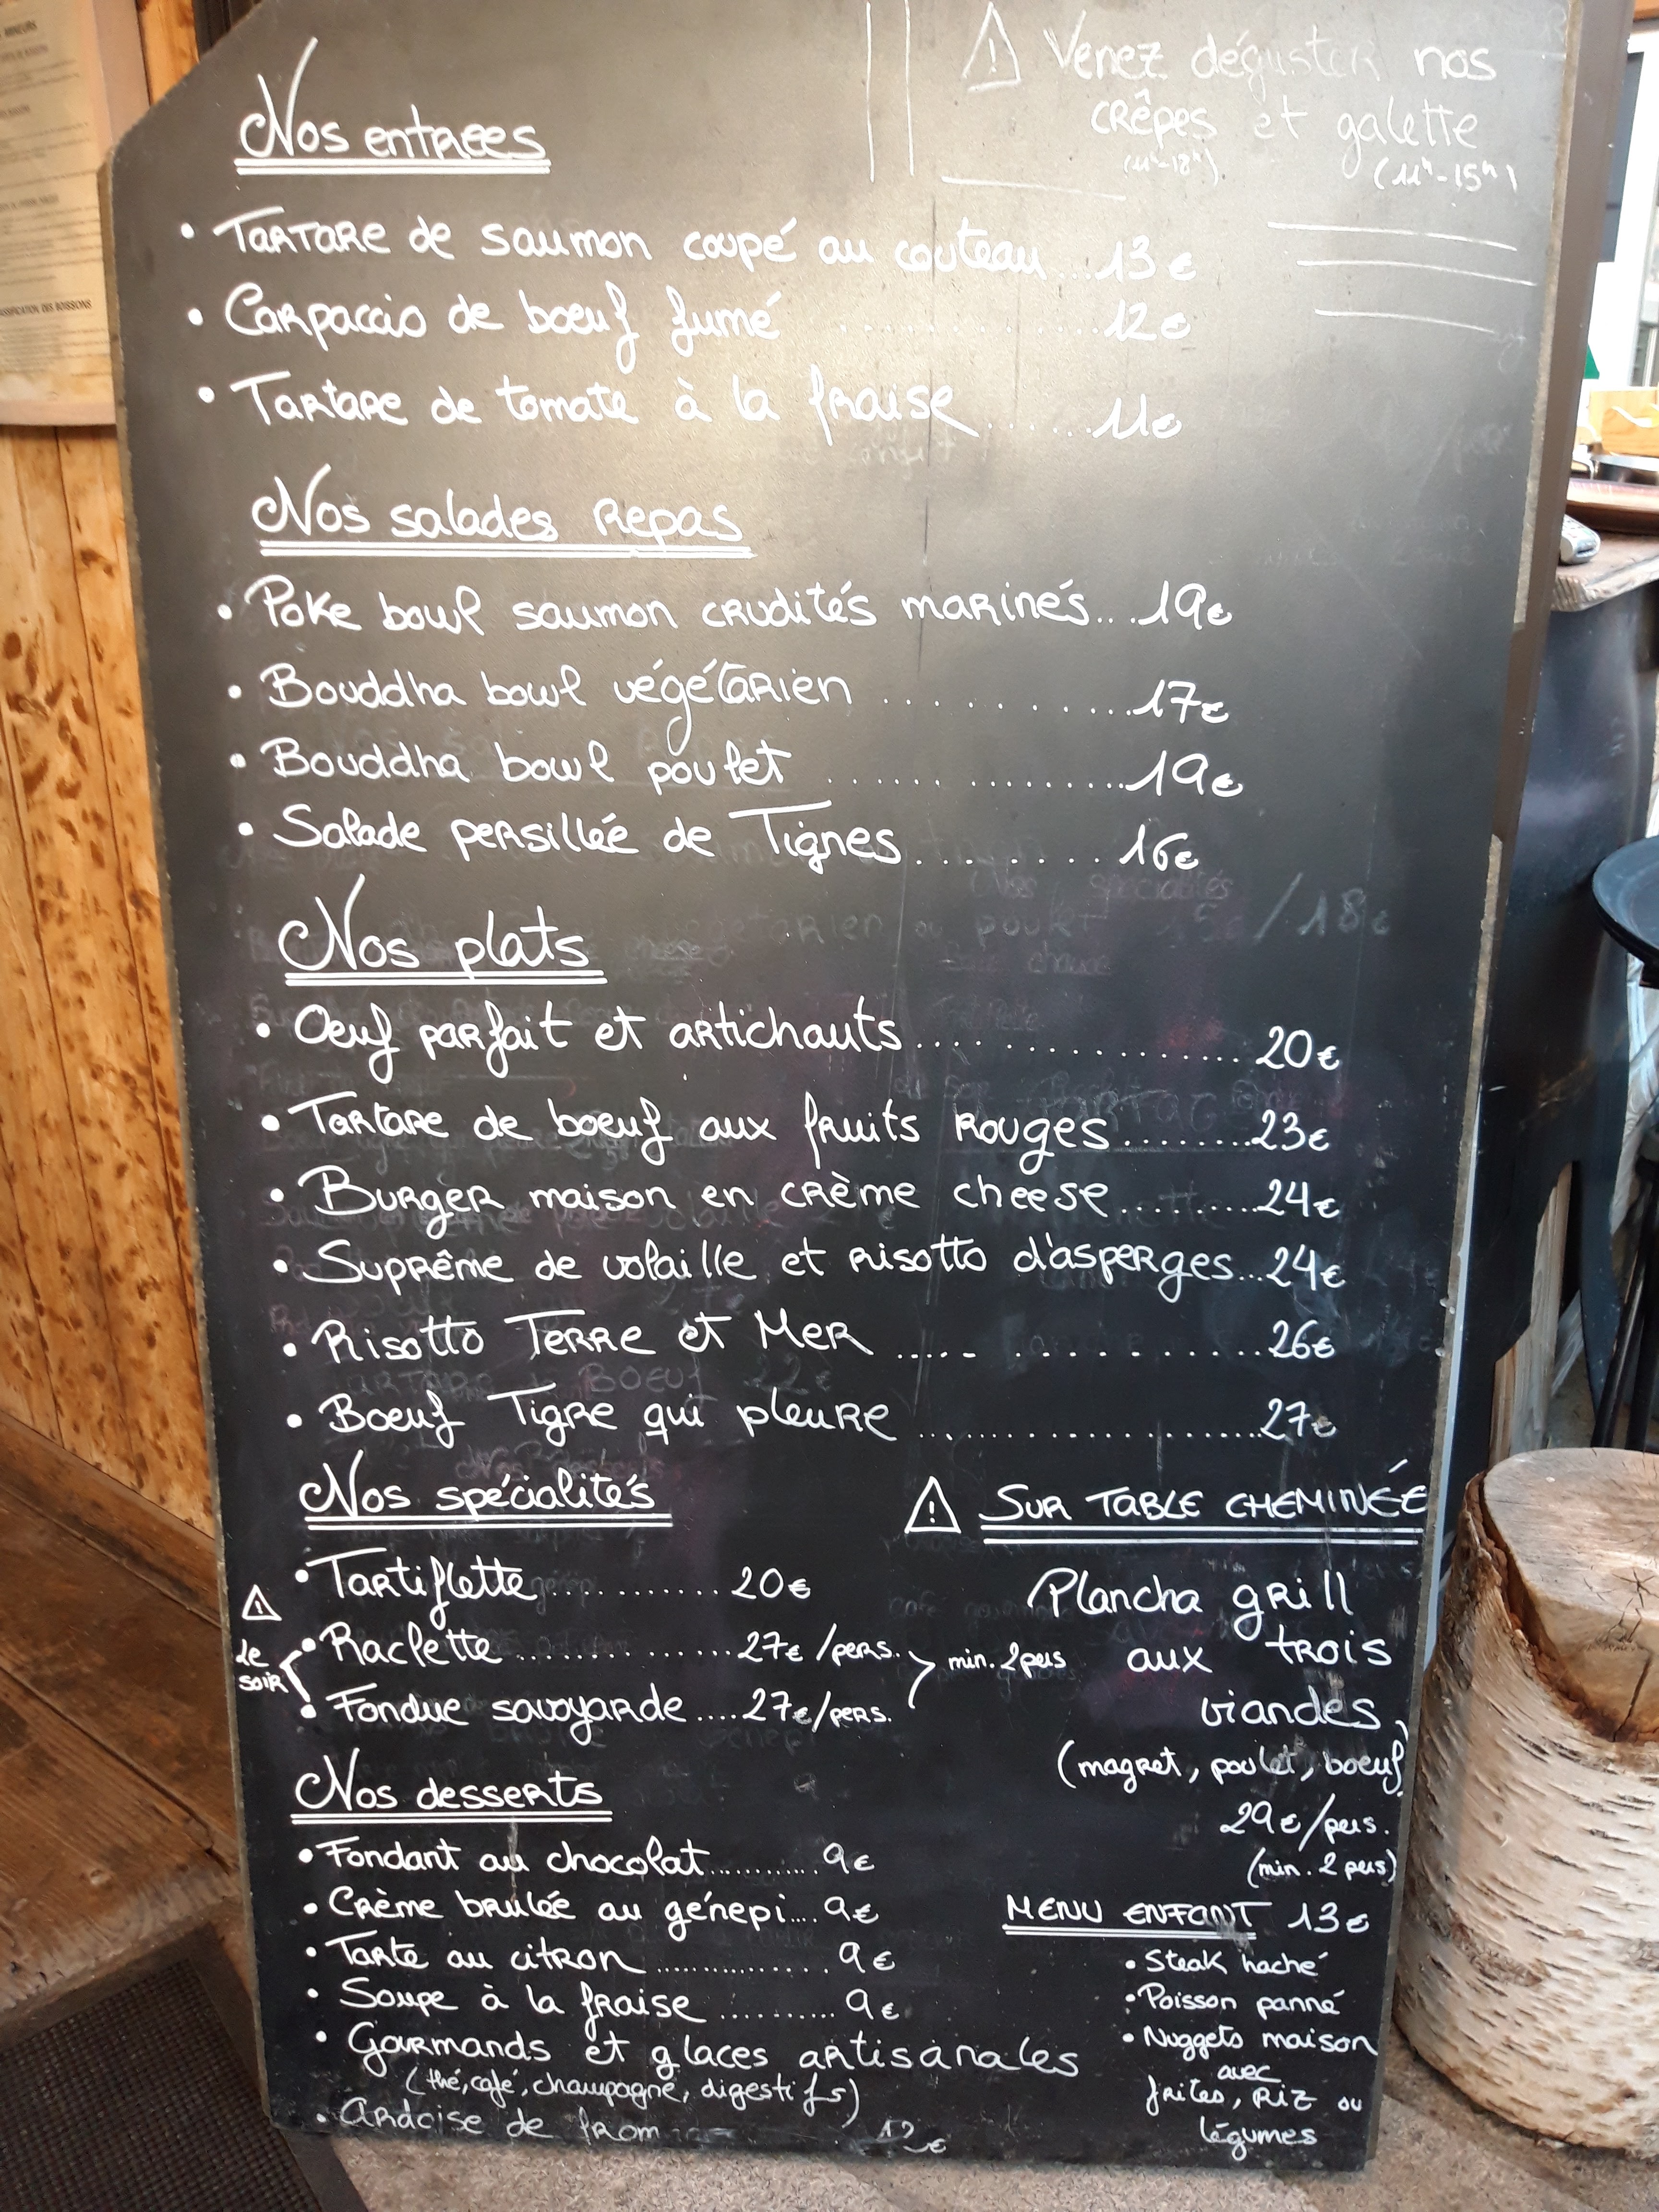 ⚠ Venez déguster nos
crêpes et galette
(11h-18h) (11h-15h)
Nos entrees
• Tartare de saumon coupé au couteau...13€
• Carpaccio de boeuf fumé ............12€
• Tartare de tomate à la fraise......11€
Nos salades Repas
• Poke bowl saumon crudités marinés...19€
• Bouddha bowl végétarien ...........17€
• Bouddha bowl poulet ...............19€
• Salade persillée de Tignes........16€
Nos plats
• Oeuf parfait et artichauts.................20€
• Tartare de boeuf aux fruits Rouges........23€
• Burger maison en crème cheese.........24€
• Suprême de volaille et Risotto d'asperges...24€
• Risotto Terre et Mer ..............26€
• Boeuf Tigre qui pleure ..................27€
Nos spécialités
• Tartiflette..........20€
• Raclette............27€/pers.
• Fondue savoyarde....27€/pers.
min. 2 pers
⚠ le
soir
⚠ SUR TABLE CHEMINÉE
Plancha grill
aux trois
viandes
(magret, poulet, boeuf)
29€/pers.
(min. 2 pers)
Nos desserts
• Fondant au chocolat...........9€
• Crème brulée au génepi....9€
• Tarte au citron..............9€
• Soupe à la fraise ..........9€
• Gourmands et glaces artisanales
(thé, café, champagne, digestifs)
• Ardoise de from 12€
MENU ENFANT 13€
• Steak haché
• Poisson panné
• Nuggets maison
avec
frites, Riz ou
légumes